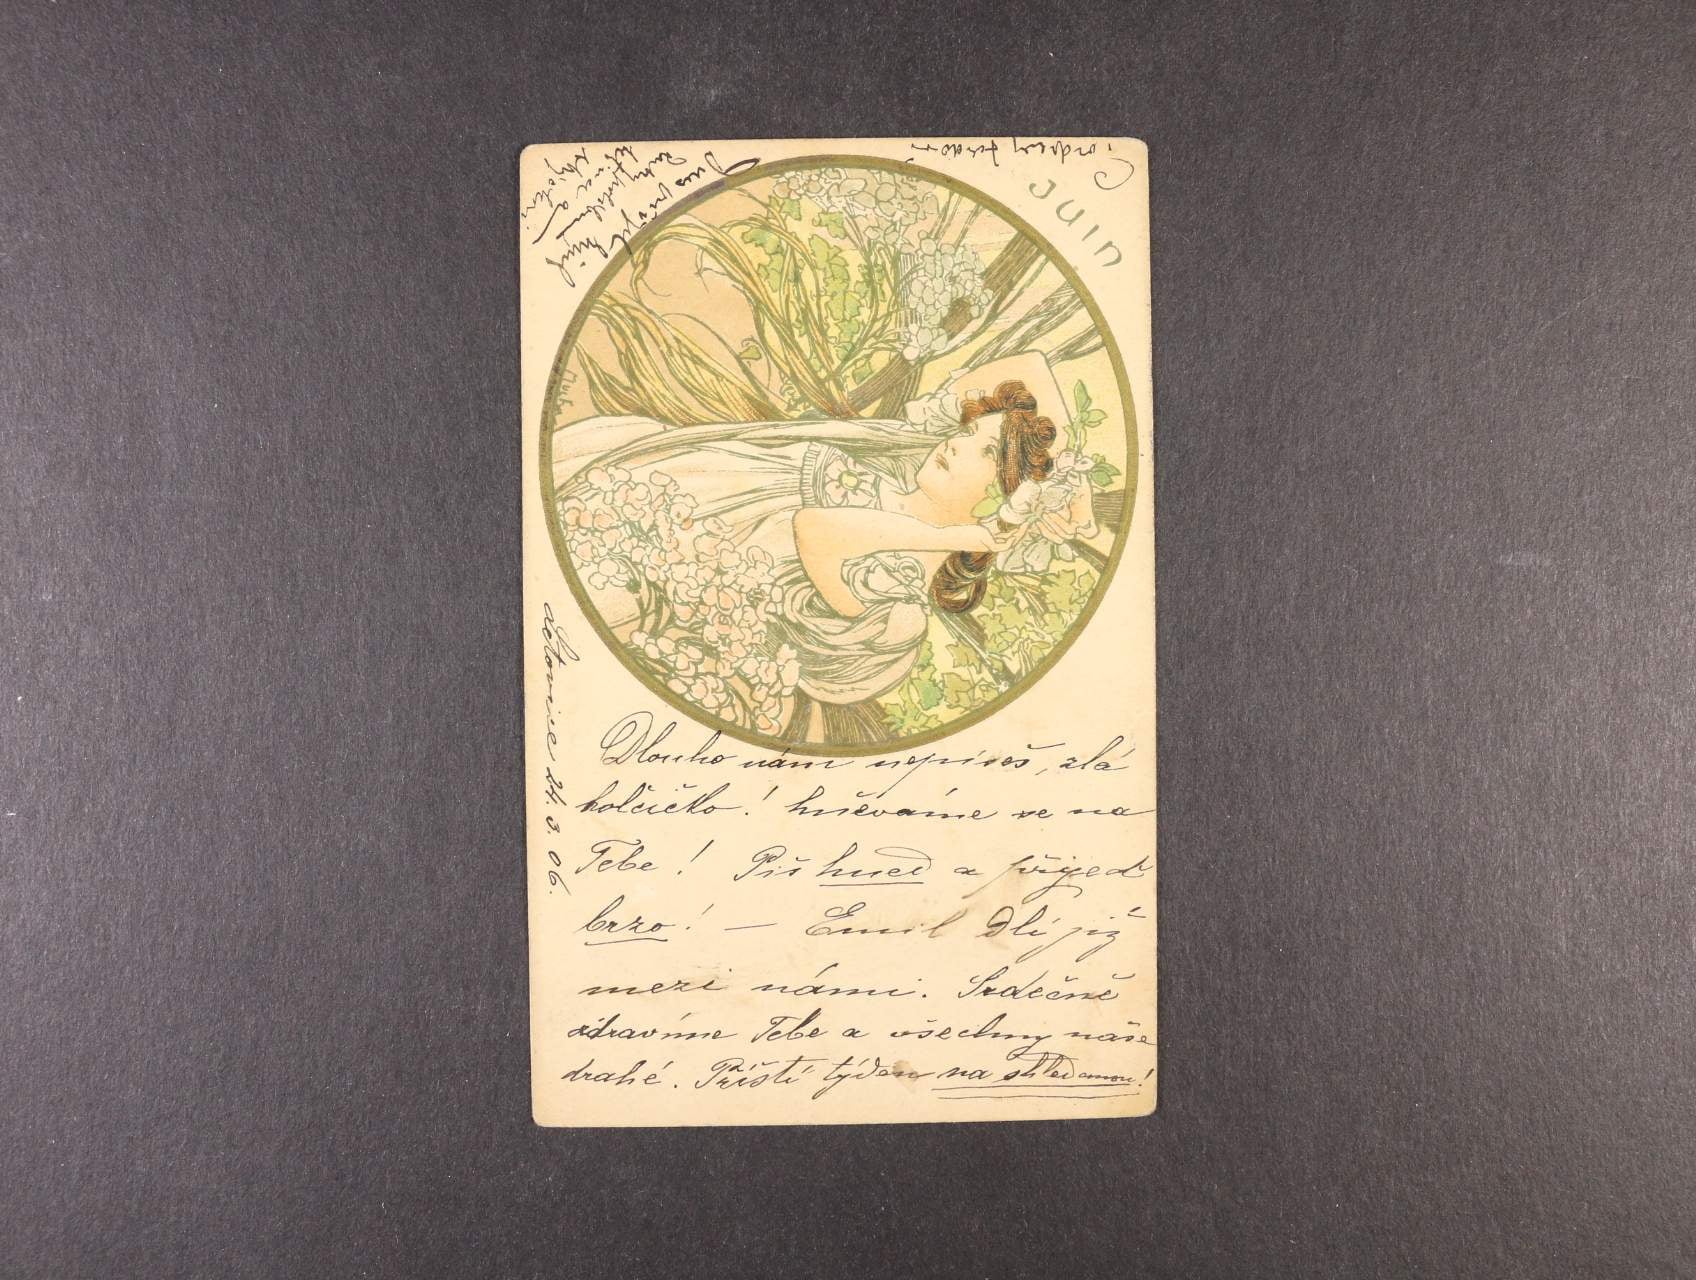 JUIN
Mucha
Letovice 24. 3. 06.
Dlouho nám nepíšeš, zlá
holčičko! hněváme se na
Tebe! Piš hned a přijeď
brzo! — Emil dlí již
mezi námi. Srdečně
zdravíme Tebe a všechny naše
drahé. Příští týden na shledanou!